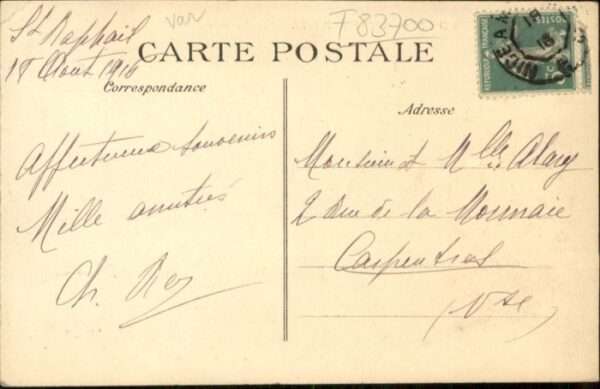 St Raphaël
18 Août 1916
Var
F83700
CARTE POSTALE
Correspondance
Adresse
REPUBLIQUE FRANÇAISE
POSTES
NICE A M
Affectueux souvenirs
Mille amitiés
Ch. Rey
Monsieur et Mlle Alary
2 Rue de la Monnaie
Carpentras
(Vse)